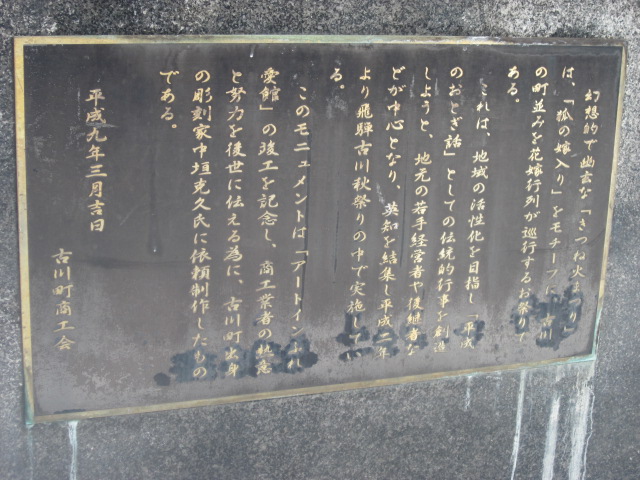 幻想的で幽玄な「きつね火まつり」
は、「狐の嫁入り」をモチーフに、古川
の町並みを花嫁行列が巡行するお祭りで
ある。
これは、地域の活性化を目指し「平成
のおとぎ話」としての伝統的行事を創造
しようと、地元の若手経営者や後継者な
どが中心となり、英知を結集し平成二年
より飛騨古川秋祭りの中で実施してい
る。
このモニュメントは「アートイン
愛館」の竣工を記念し、商工業者の熱意
と努力を後世に伝える為に、古川町出身
の彫刻家中垣克久氏に依頼制作したもの
である。
平成九年三月吉日
古川町商工会